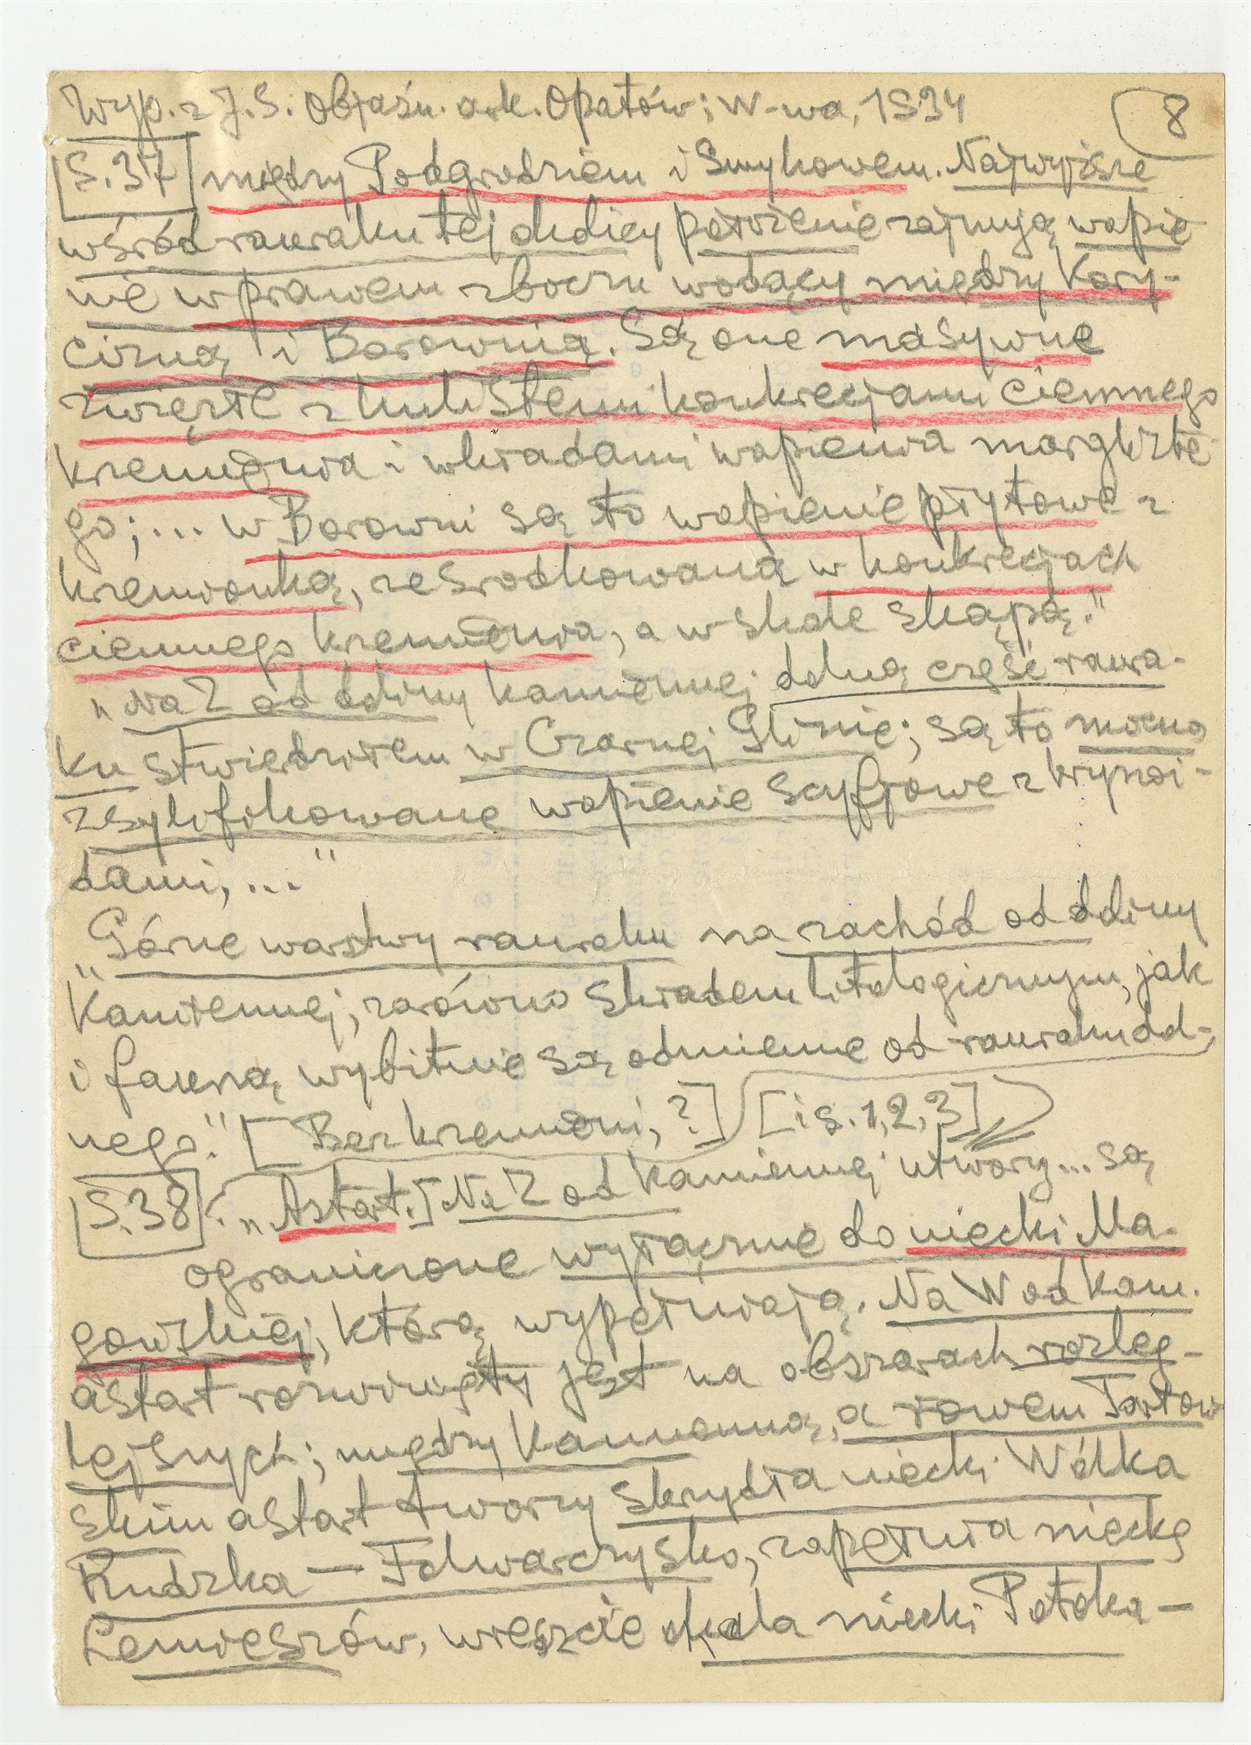 Wyp. z J. S. Objaśn. ark. Opatów; W-wa, 1934
8
S. 37 między Podgrodziem i Smykowem. Najwyższe
wśród rauraku tej okolicy położenie zajmują wapie
nie w prawem zboczu wodący między Kory-
cizną i Borownią. Są one masywne
zwięzłe z kulistemi konkrecjami ciemnego
krzemienia i wkładami wapienia marglíste
go; ... w Borowni są to wapienie płytowe z
krzemionką, ześrodkowaną w konkrecjach
ciemnego krzemienia, a w skale skąpą."
„Na Z od doliny Kamiennej dolną część raura-
ku stwierdziłem w Czarnej Glinie; są to mocno
zsylifikowane wapienie scyfjowe z krynoi-
dami, ..."
„Górne warstwy rauraku na zachód od doliny
Kamiennej, zarówno składem litologicznym, jak
i fauną wybitnie są odmienne od rauraku dol-
nego." [Bez krzemieni, ?] [i s. 1, 2, 3]
S. 38 „Astart.] Na Z od Kamiennej utwory... są
ograniczone wyłącznie do niecki Ma-
gońskiej, którą wypełniają. Na W od Kam.
astart rozwinięty jest na obszarach rozleg-
lejszych; między Kamienną, a rowem Tarłow
skim astart tworzy skrzydła niecki Wólka
Rudzka — Folwarczysko, zapełnia nieckę
Lemieszów, wreszcie okala niecki Potoka —